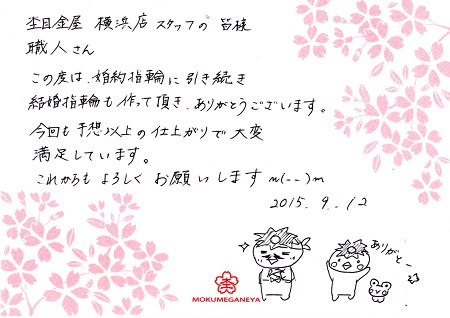 杢目金屋 横浜店 スタッフの 皆様
職人さん
この度は、婚約指輪に引き続き
結婚指輪も作って頂き、ありがとうございます。
今回も予想以上の仕上がりで大変
満足しています。
これからもよろしくお願いしますm(--)m
2015. 9. 12
ありがと〜
MOKUMEGANEYA